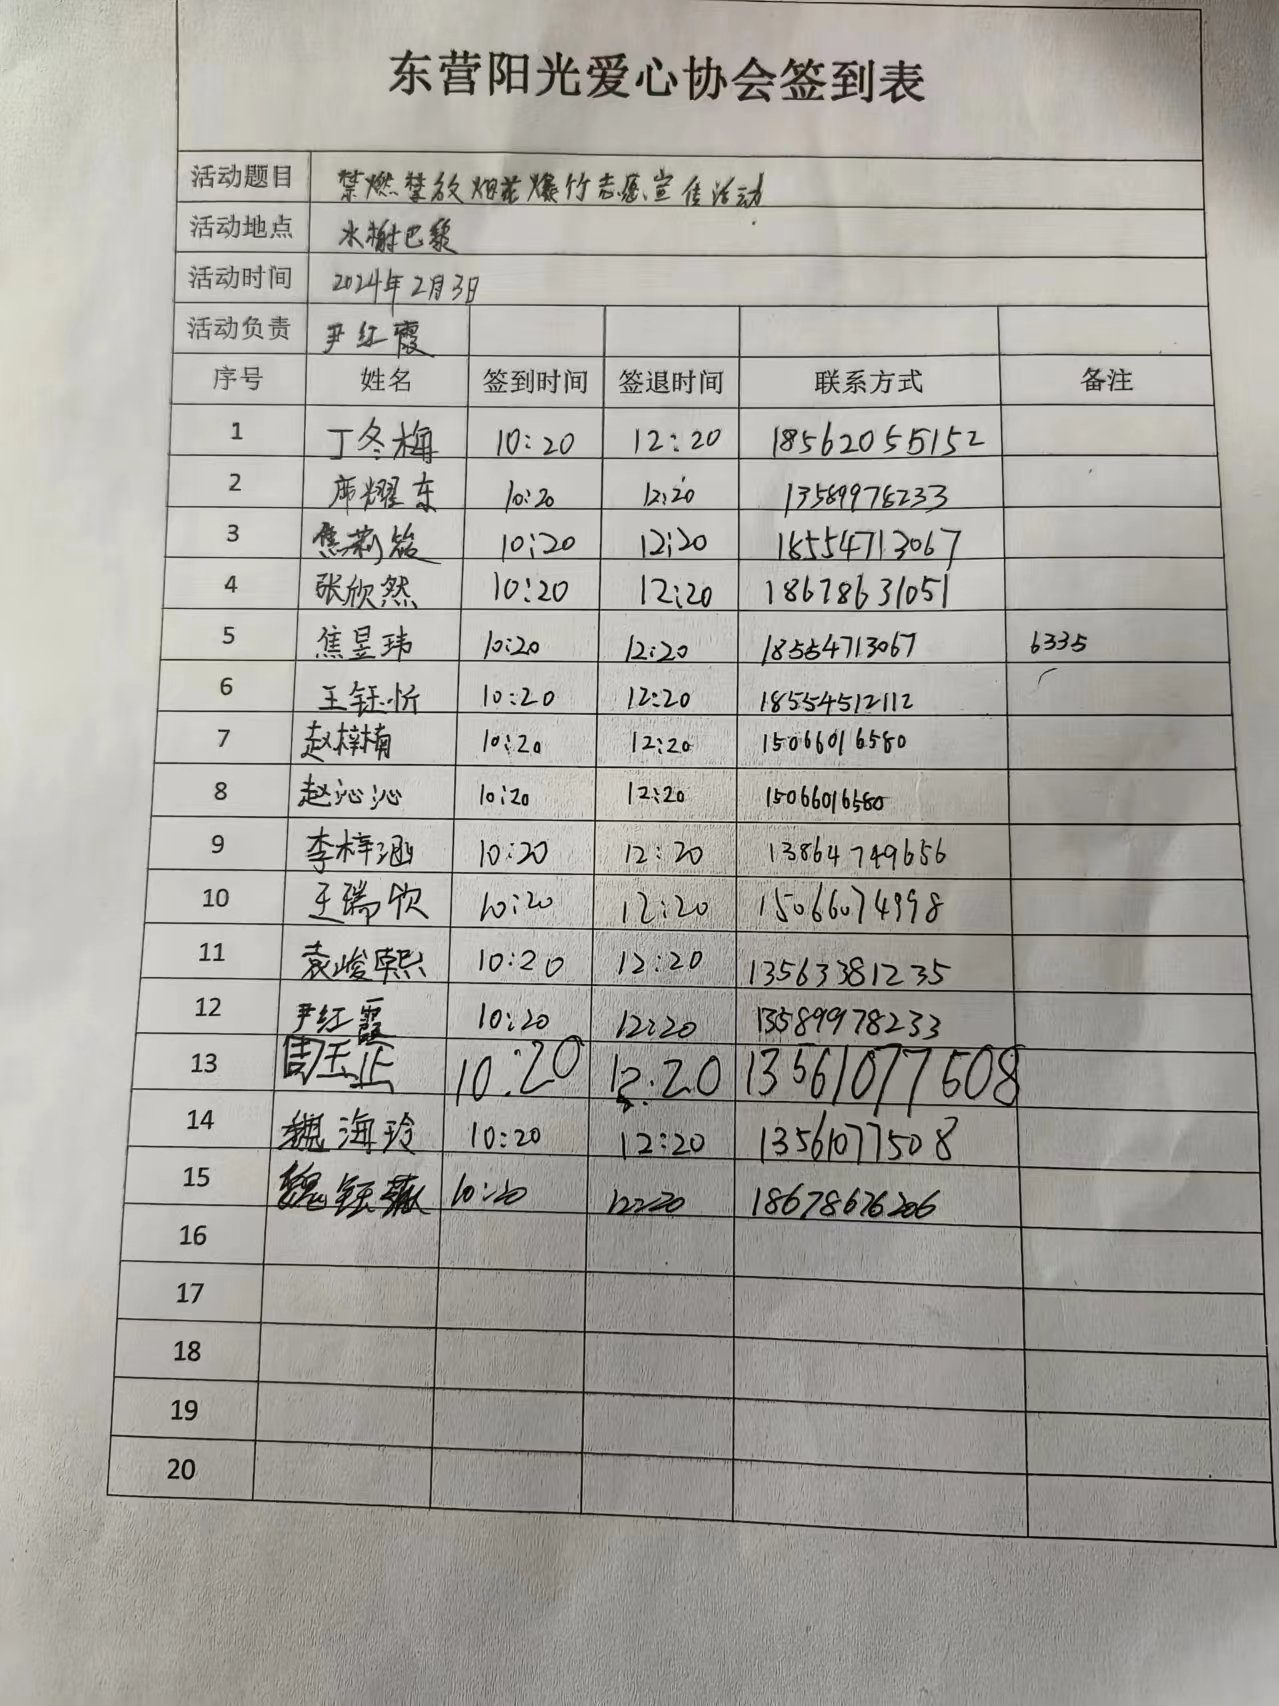 东营阳光爱心协会签到表
活动题目 禁燃禁放烟花爆竹志愿宣传活动
活动地点 水榭巴黎
活动时间 2024年2月3日
活动负责 尹红霞
序号 姓名 签到时间 签退时间 联系方式 备注
1 丁冬梅 10:20 12:20 18562055152
2 席耀东 10:20 12:20 13589978233
3 焦莉筠 10:20 12:20 18554713067
4 张欣然 10:20 12:20 18678631051
5 焦昱玮 10:20 12:20 18554713067 6335
6 王钰忻 10:20 12:20 18554512112
7 赵梓楠 10:20 12:20 15066016580
8 赵沁沁 10:20 12:20 15066016580
9 李梓涵 10:20 12:20 13864749656
10 王瑞欣 10:20 12:20 15066074998
11 袁峻熙 10:20 12:20 13563381235
12 尹红霞 10:20 12:20 13589978233
13 周玉正 10:20 12:20 13561077508
14 魏海玲 10:20 12:20 13561077508
15 魏钰 10:20 12:20 18678676206
16
17
18
19
20